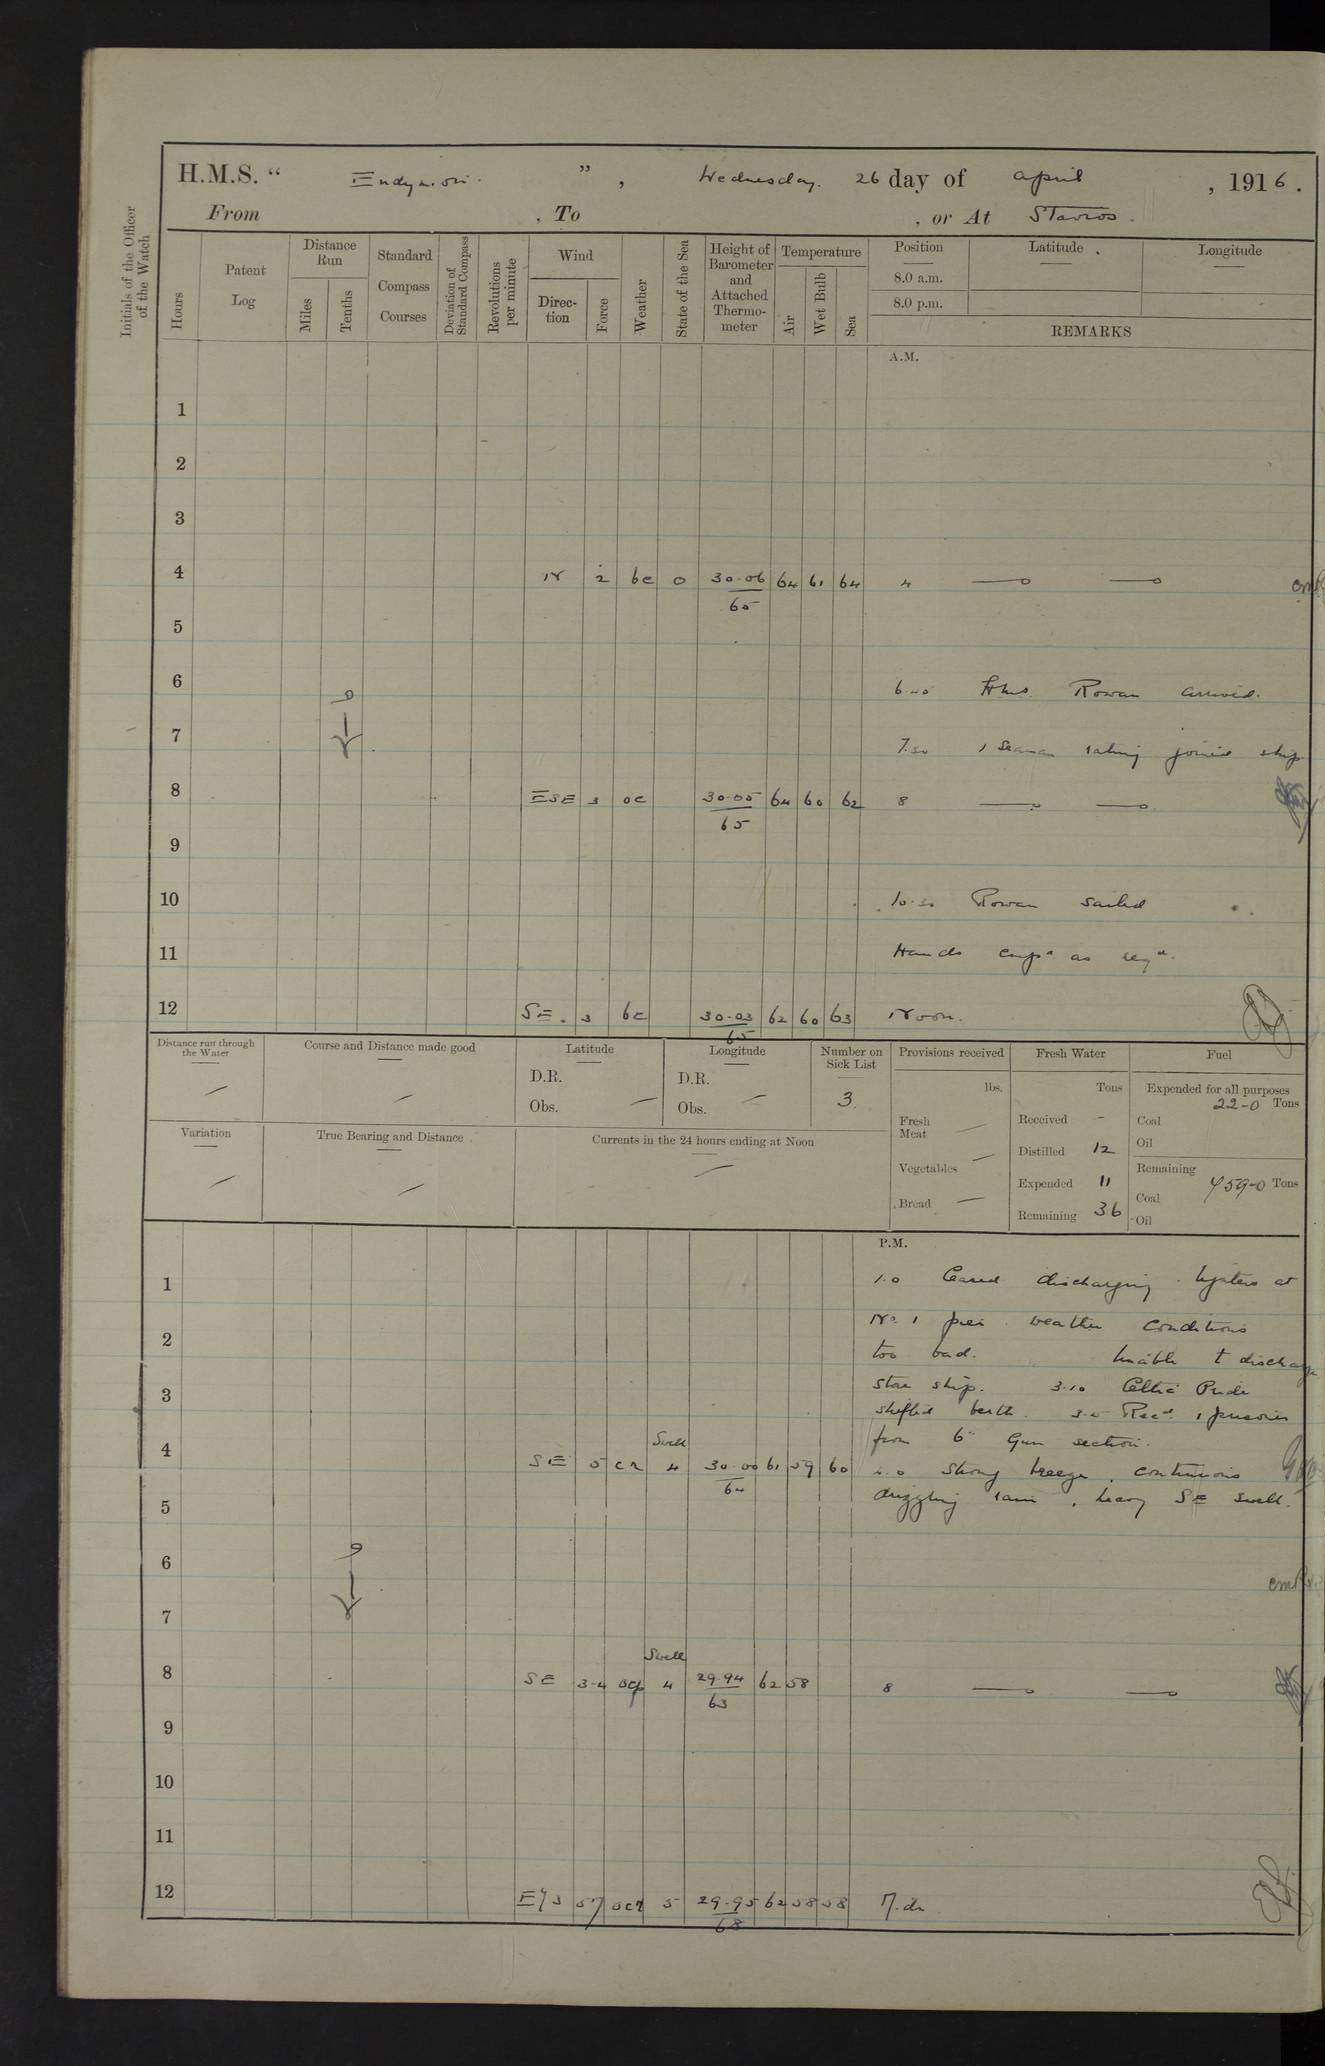 H.M.S. “ Endymion ” , Wednesday. 26 day of April , 1916.
From , To , or At Stavros.
Initials of the Officer of the Watch
Hours
Patent Log
Distance Run
Miles
Tenths
Standard Compass Courses
Deviation of Standard Compass
Revolutions per minute
Wind
Direc-tion
Force
Weather
State of the Sea
Height of Barometer and Attached Thermo-meter
Temperature
Air
Wet Bulb
Sea
Position
8.0 a.m.
8.0 p.m.
Latitude
Longitude
REMARKS
A.M.
1
2
3
4 N 2 bc 0 30.06 64 61 64 4
65
5
6
Rowan arrived.
7
1 Seaman rating joined ship
8 ESE 3 oc 30.05 64 60 62 8
65
9
10 Rowan sailed
11 Hands empd. as reqd.
12 SE. 3 bc 30.03 62 60 63 Noon.
65
Distance run through the Water
Course and Distance made good
Latitude
D.R.
Obs.
Longitude
D.R.
Obs.
Number on Sick List
3.
Provisions received
lbs.
Fresh Meat
Vegetables
Bread
Fresh Water
Tons
Received -
Distilled 12
Expended 11
Remaining 36
Fuel
Expended for all purposes
22-0 Tons
Coal
Oil
Remaining
459-0 Tons
Coal
Oil
Variation
True Bearing and Distance
Currents in the 24 hours ending at Noon
P.M.
1 1.0 Ceased discharging lighters at
No. 1 pier weather conditions
2
too bad. Unable to discharge
store ship. 3.10 Celtic Pride
3
shifted berth. Recd. 1 prisoner
from 6" Gun section.
Swell
4 SE 5 cr 4 30.00 61 59 60 4.0 Strong breeze, continuous
64
drizzling rain, heavy SE swell.
5
6
7
Swell
8 SE 3-4 ocp 4 29.94 62 58 8
63
9
10
11
12 5 29.95 62 58 58 M.dn
68